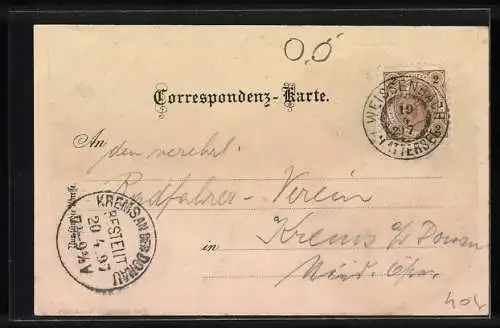 0,0
2
WEISSENBACH
19
97
A/ATTERSEE
Correspondenz-Karte.
An
den verehrl.
Radfahrer-Verein
in
Krems a/Donau
Nied. Öst.
KREMS AN DER DONAU
BESTELLT
20 4 97